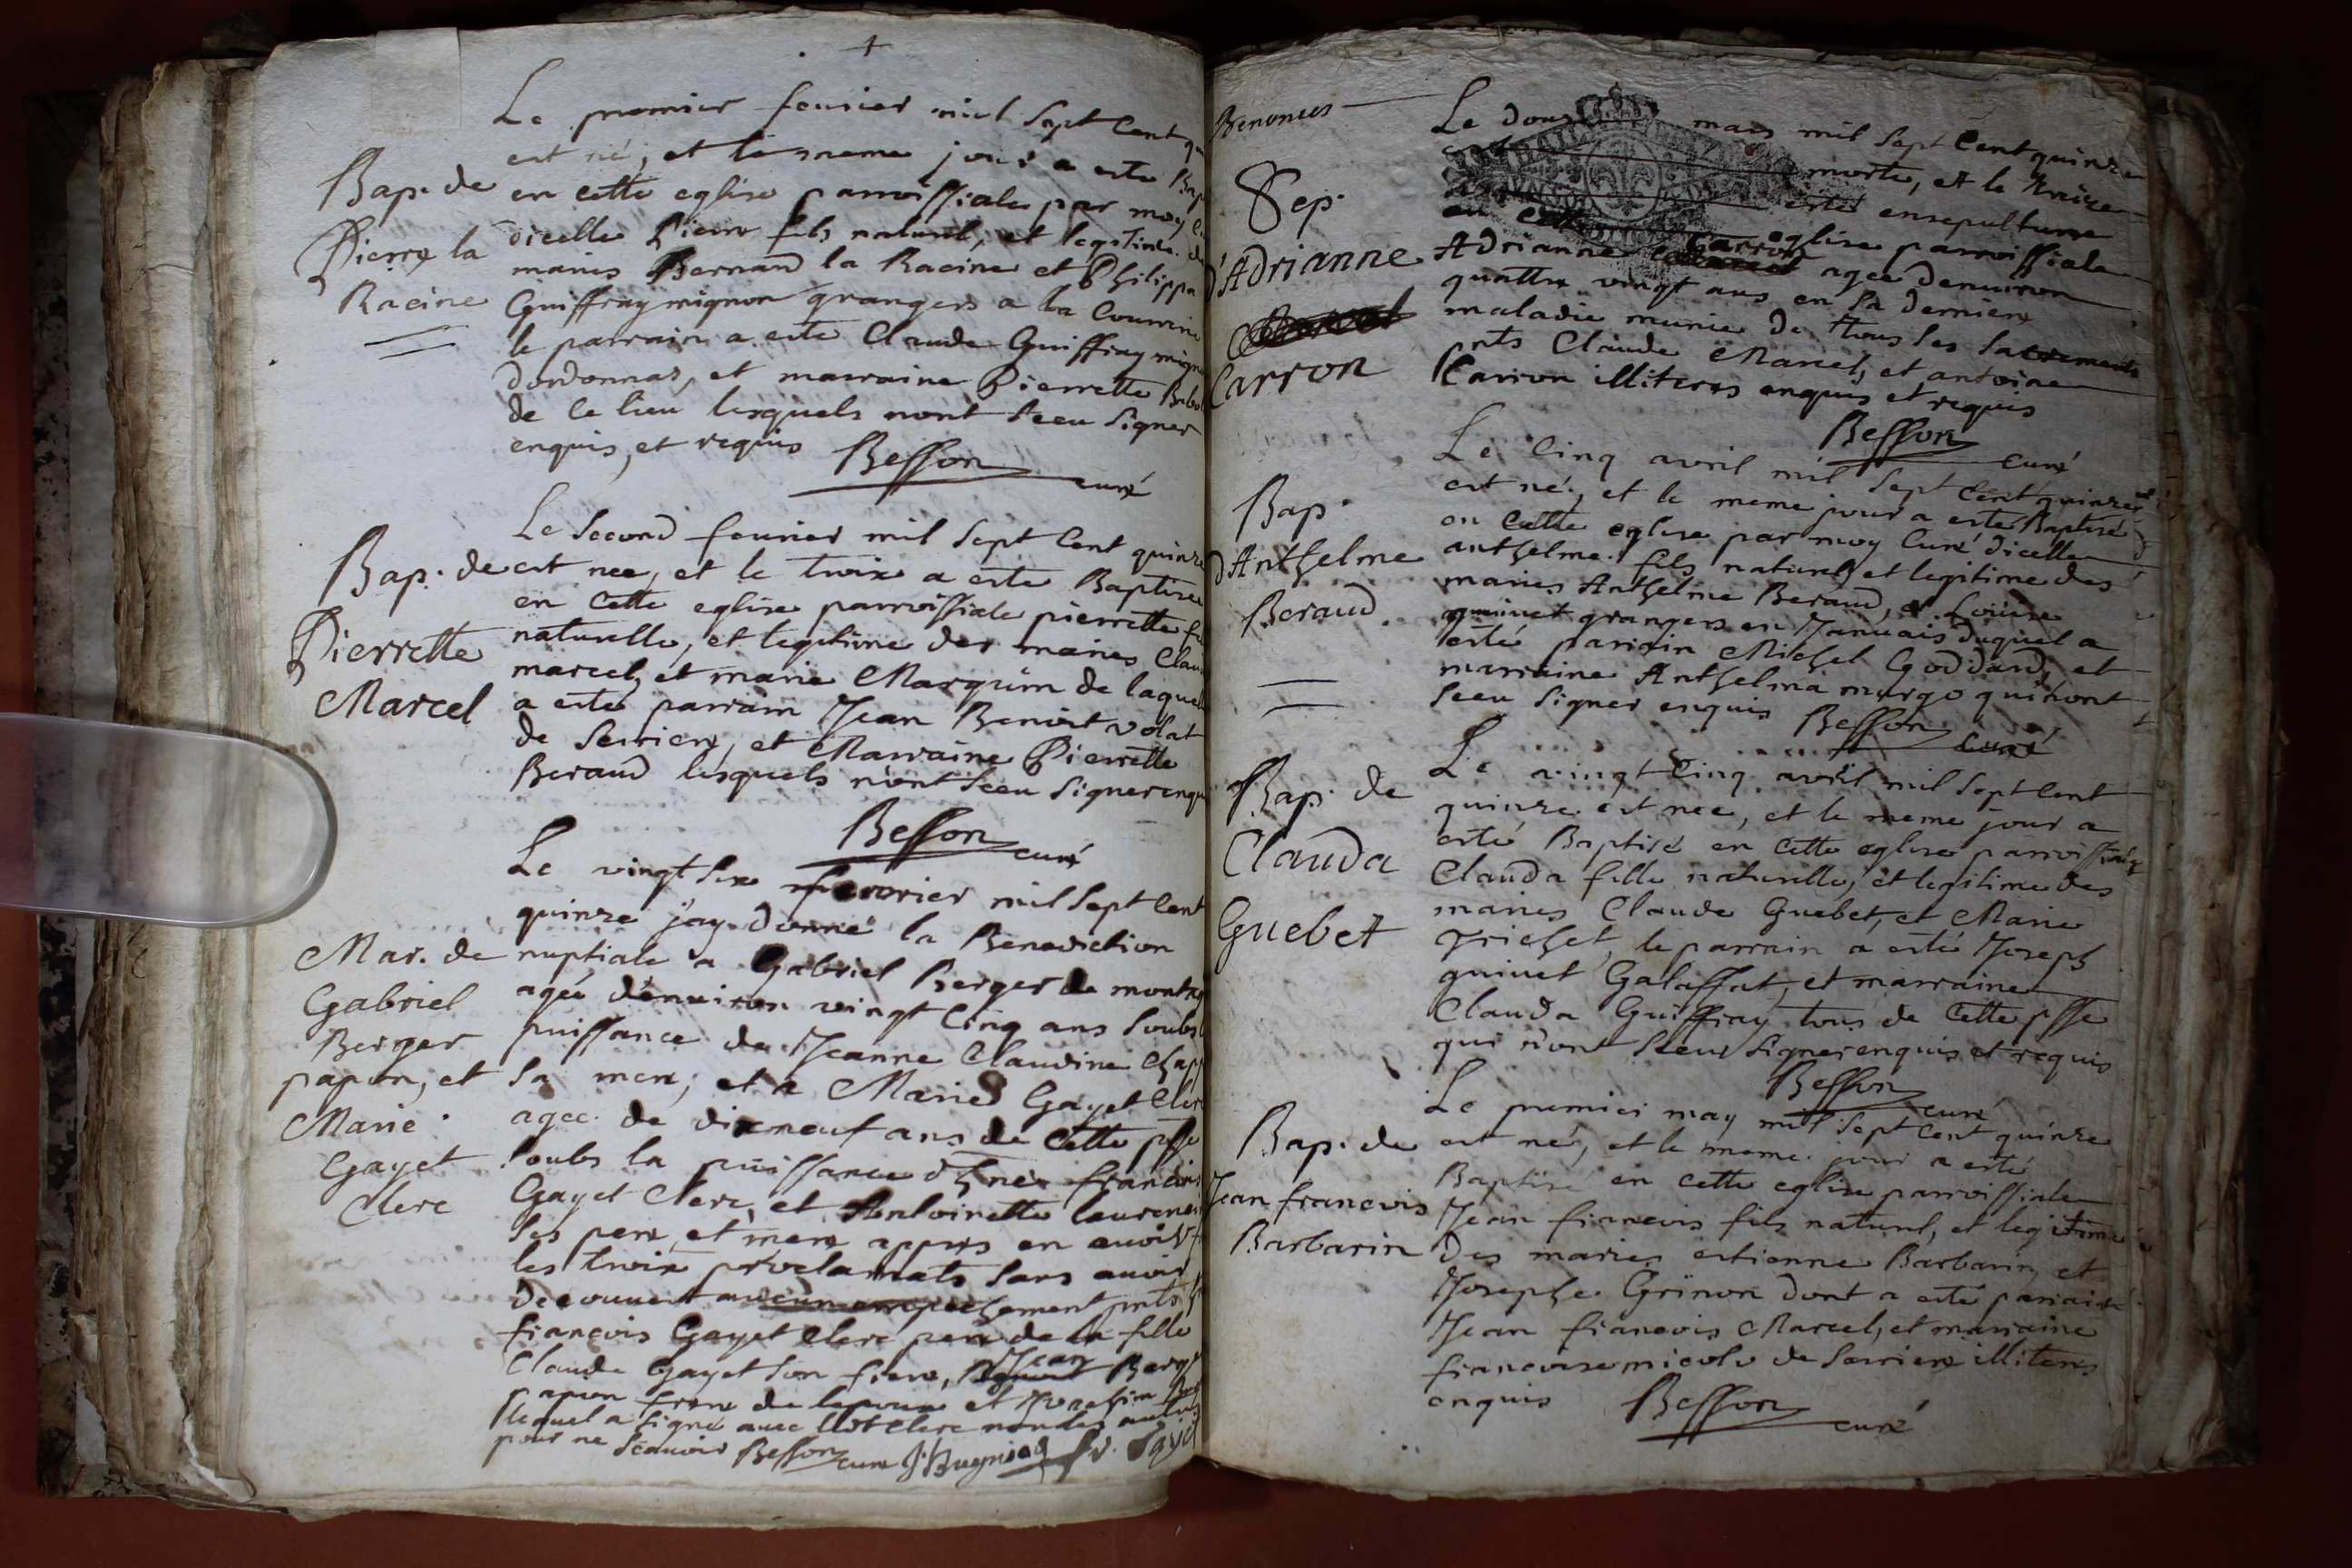 Le premier feurier mil Sept Cent
est né, et le mesme jour a esté
Bap. de
en cette eglise parroissiale par moy
Pierre la
dicelle Pierre fils naturel, et legitime
Racine
maries Bernard la Racine et Philippa
Guiffray mignon grangers a la
le parrain a esté Claude Guiffray
dordonnas, et marraine Pierrette
de ce lieu lesquels nont sceu Signer
enquis, et requis Besson curé
Le Second feurier mil Sept Cent quinze
Bap. de
est nee, et le trois a esté Baptisee
Pierrette
en cette eglise parroissiale pierrette
Marcel
naturelle, et legitime des maries
marcel, et marie Marquin de
a esté parrain Jean Benoit volat
de Serriere, et Marraine Pierrette
Beraud lesquels n'ont sceu Signer
Besson curé
Le vingt Six feuvrier mil Sept Cent
quinze j'ay donné la Benediction
Mar. de
Gabriel
Berger
papon, et
Marie
Gayet
Clerc
nuptiale a Gabriel Berger de
agée d'enuiron vingt Cinq ans soubs
puissance de Jeanne Claudine
Sa mere, et a Marie Gayet
agee de dixneuf ans de Cette psse
soubs la puissance
Gayet Clerc, et Antoinette
Ses pere, et mere appres en auoir
les trois proclamats Sans auoir
decouuert aucun empechement pnts
francois Gayet clerc pere de la fille
Claude Gayet Son frere, Jean
papon frere de lepoux et
lequel a signé auec clerc non les autres
pour ne Scauoir Besson curé
Benonces
Le mars mil Sept Cent quinze
morte, et le treize
Sep.
d'Adrianne
Carron
esté ensepulturee
en cette eglise parroissiale
Adrianne Carron agee denuiron
quattre vingt ans en Sa derniere
maladie munie de tous les Sacrements
pnts Claude Marcel, et antoine
Carron illiteres enquis et requis
Besson curé
Le Cinq avril mil Sept Cent quinze
Bap.
d'Anthelme
Beraud
est né, et le meme jour a esté Baptisé
en cette eglise par moy Curé dicelle
anthelme fils naturel, et legitime des
maries Anthelme Beraud, et Louise
quinet grangers en duquel a
esté parrain Michel Goddard, et
marraine Anthelma qui nont
sceu Signer enquis Besson Curé
Le vingt Cinq avril mil Sept Cent
Bap. de
Clauda
Guebet
quinze est nee, et le meme jour a
esté Baptisé en cette eglise parroissiale
Clauda fille naturelle, et legitime des
maries Claude Guebet, et Marie
Trichet, le parrain a esté Joseph
quinet Galaffat, et marraine
Clauda Guiffray tous de Cette psse
qui n'ont Sceu Signer enquis et requis
Besson curé
Le premier may mil Sept Cent quinze
Bap. de
Jean francois
Barbarin
est né, et le meme jour a esté
Baptisé en cette eglise parroissiale
Jean francois fils naturel, et legitime
des maries estienne Barbarin, et
Josephe Grinon dont a esté parrain
Jean francois Marcel, et marraine
francoise de Serriere illiteres
enquis Besson curé